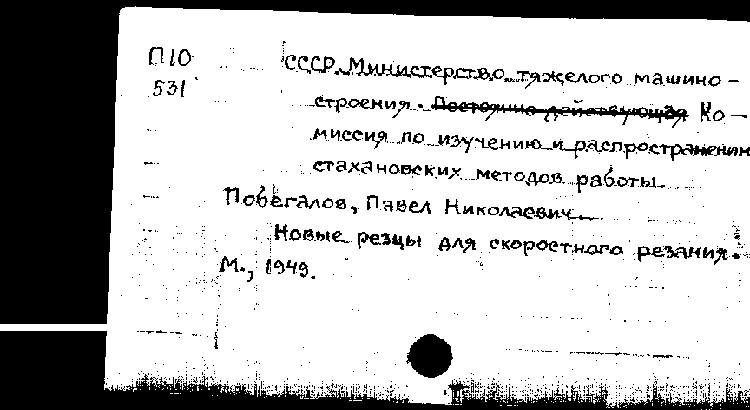 П10
531
СССР. Министерство тяжелого машино-
строения. Постоянно действующая Ко-
миссия по изучению и распространению
стахановских методов работы.
Побегалов, Павел Николаевич.
Новые резцы для скоростного резания.
М., 1949.